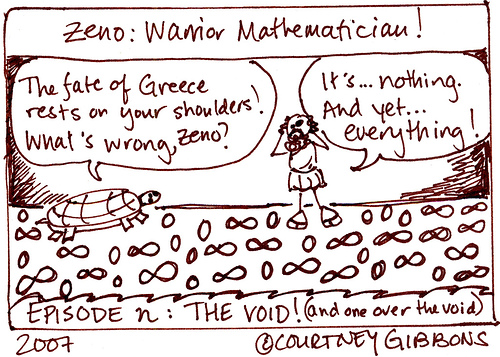 Zeno: Warrior Mathematician!
The fate of Greece
rests on your shoulders!
What's wrong, Zeno?
It's... nothing.
And yet...
everything!
0 0 0 0 0 0 ∞ ∞ ∞
∞ 0 ∞ 0 ∞ 0 0 ∞ 0 ∞ 0
∞ 0 ∞ 0 ∞ 0 ∞ 0 ∞ 0
EPISODE n: THE VOID! (and one over the void)
2007 ©COURTNEY GIBBONS